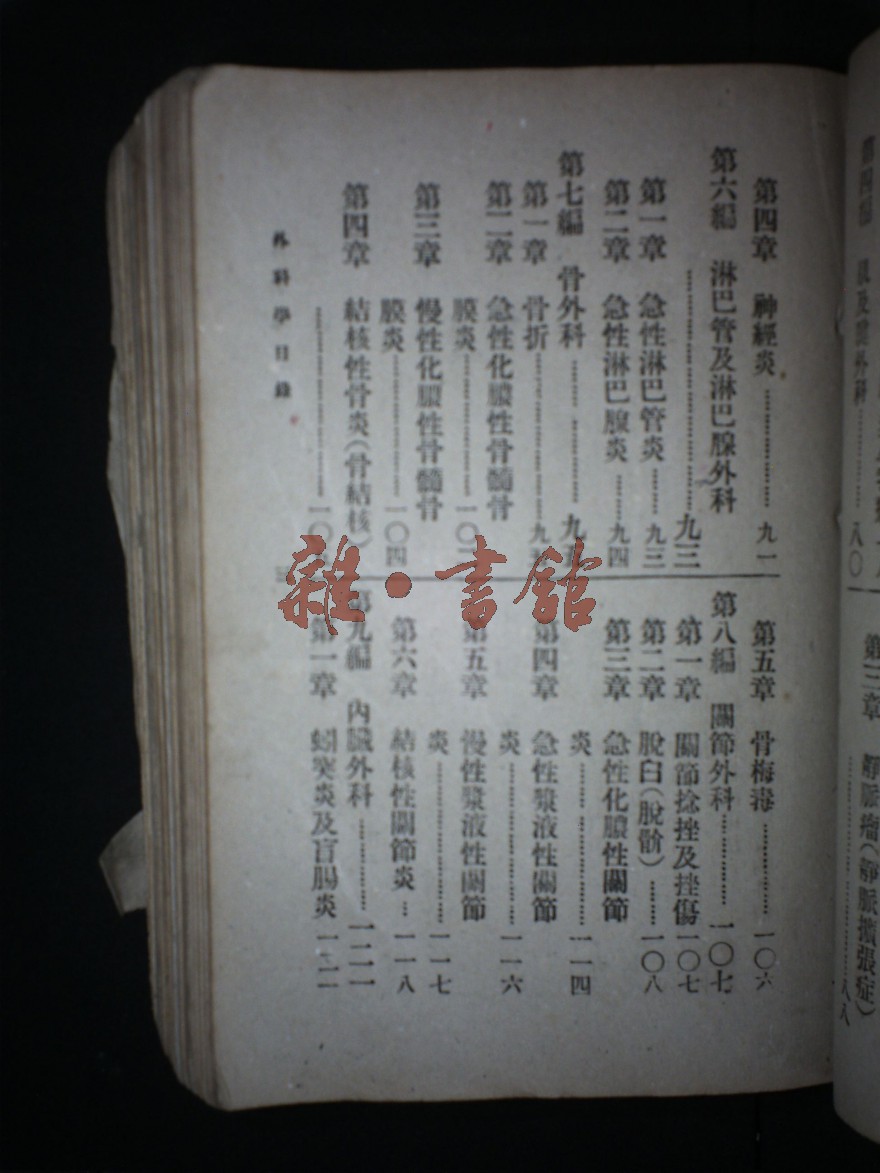 外科……八〇
第三章 靜脈瘤(靜脈擴張症)
……八八
第四章 神經炎……九一
第六編 淋巴管及淋巴腺外科
……九三
第一章 急性淋巴管炎……九三
第二章 急性淋巴腺炎……九四
第七編 骨外科……九五
第一章 骨折……九五
第二章 急性化膿性骨髓骨
膜炎……一〇
第三章 慢性化膿性骨髓骨
膜炎……一〇四
第四章 結核性骨炎(骨結核)
……一〇
第五章 骨梅毒……一〇六
第八編 關節外科……一〇七
第一章 關節捻挫及挫傷 一〇七
第二章 脫臼(脫骱)……一〇八
第三章 急性化膿性關節
炎……一一四
第四章 急性漿液性關節
炎……一一六
第五章 慢性漿液性關節
炎……一一七
第六章 結核性關節炎…一一八
第九編 內臟外科……一二一
第一章 蚓突炎及盲腸炎 一二一
外科學目錄
三
雜·書館